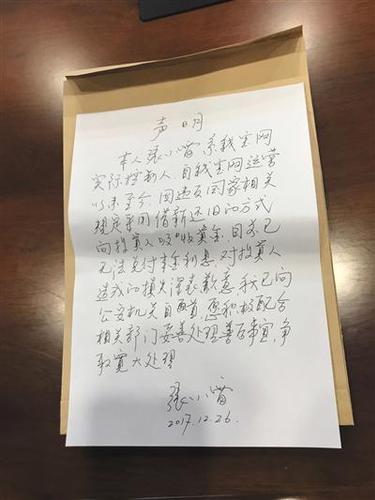 声明
本人张小雷系钱宝网
实际控制人,自钱宝网运营
以来至今,因违反国家相关
规定采用借新还旧的方式
向投资人吸收资金,目前已
无法兑付本金利息,对投资人
造成的损失深表歉意,我已向
公安机关自首,愿积极配合
相关部门妥善处理善后事宜,争
取宽大处理
张小雷
2017.12.26.